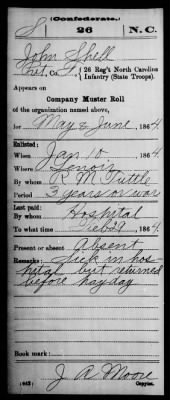 (Confederate.)
S 26 N.C.
John Shell
Pvt., Co. F, 26 Reg't North Carolina
Infantry (State Troops).
Appears on
Company Muster Roll
of the organization named above,
for May & June, 1864.
Enlisted:
When Jan 10, 1864.
Where Lenoir
By whom R. M. Tuttle
Period 3 years or war
Last paid:
By whom Hospital
To what time Feb 29, 1864.
Present or absent Absent
Remarks: Sick in hos-
pital but returned
before payday
Book mark:
J A Moore
(642) Copyist.